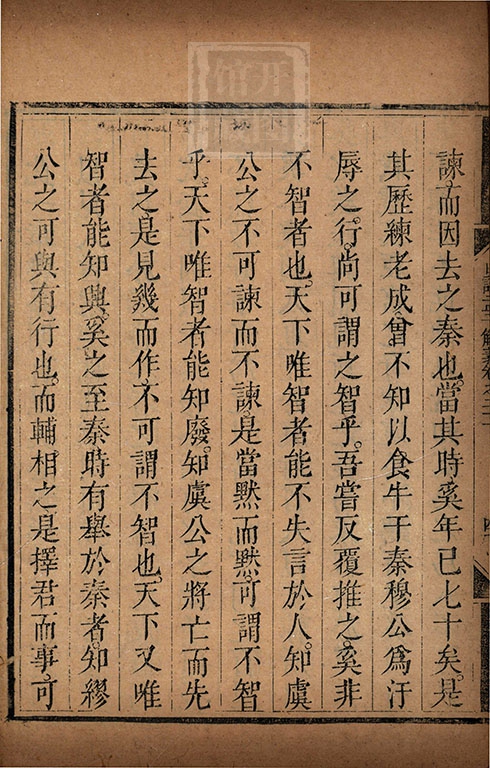 諫而因去之秦也。當其時奚年已七十矣。是
其歷練老成。曾不知以食牛干秦穆公爲汙
辱之行。尚可謂之智乎。吾嘗反覆推之。奚非
不智者也。天下唯智者能不失言於人。知虞
公之不可諫而不諫。是當默而默。可謂不智
乎。天下唯智者能知廢。知虞公之將亡而先
去之。是見幾而作。不可謂不智也。天下又唯
智者能知興。奚之至秦時有舉於秦者。知繆
公之可與有行也。而輔相之。是擇君而事。可